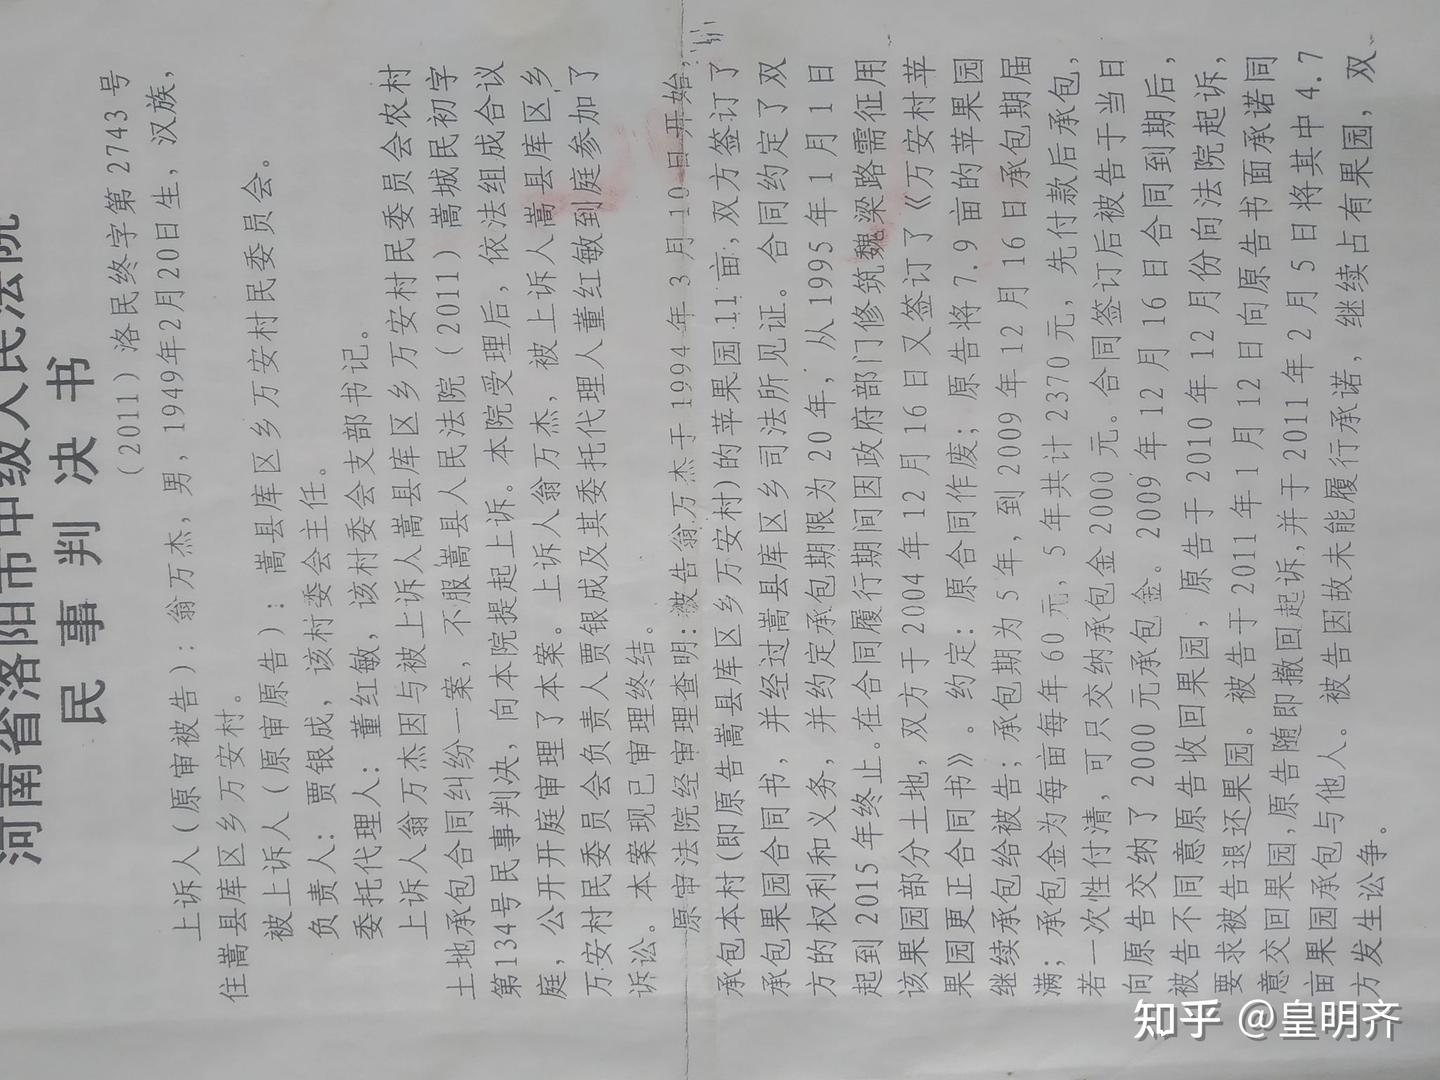 河南省洛阳市中级人民法院
民事判决书
（2011）洛民终字第2743号
上诉人（原审被告）：翁万杰，男，1949年2月20日生，汉族，
住嵩县库区乡万安村。
被上诉人（原审原告）：嵩县库区乡万安村民委员会。
负责人：贾银成，该村委会主任。
委托代理人：董红敏，该村委会支部书记。
上诉人翁万杰因与被上诉人嵩县库区乡万安村民委员会农村
土地承包合同纠纷一案，不服嵩县人民法院（2011）嵩城民初字
第134号民事判决，向本院提起上诉。本院受理后，依法组成合议
庭，公开开庭审理了本案。上诉人翁万杰，被上诉人嵩县库区乡
万安村民委员会负责人贾银成及其委托代理人董红敏到庭参加了
诉讼。本案现已审理终结。
原审法院经审理查明：被告翁万杰于1994年3月10日开始，
承包本村(即原告嵩县库区乡万安村)的苹果园11亩，双方签订了
承包果园合同书，并经过嵩县库区乡司法所见证。合同约定了双
方的权利和义务，并约定承包期限为20年，从1995年1月1日
起到2015年终止。在合同履行期间因政府部门修筑魏梁路需征用
该果园部分土地，双方于2004年12月16日又签订了《万安村苹
果园更正合同书》。约定：原合同作废；原告将7.9亩的苹果园
继续承包给被告；承包期为5年，到2009年12月16日承包期届
满；承包金为每亩每年60元，5年共计2370元，先付款后承包，
若一次性付清，可只交纳承包金2000元。合同签订后被告于当日
向原告交纳了2000元承包金。2009年12月16日合同到期后，
被告不同意原告收回果园，原告于2010年12月份向法院起诉，
要求被告退还果园。被告于2011年1月12日向原告书面承诺同
意交回果园，原告随即撤回起诉，并于2011年2月5日将其中4.7
亩果园承包与他人。被告因故未能履行承诺，继续占有果园，双
方发生讼争。
知乎 @皇明齐